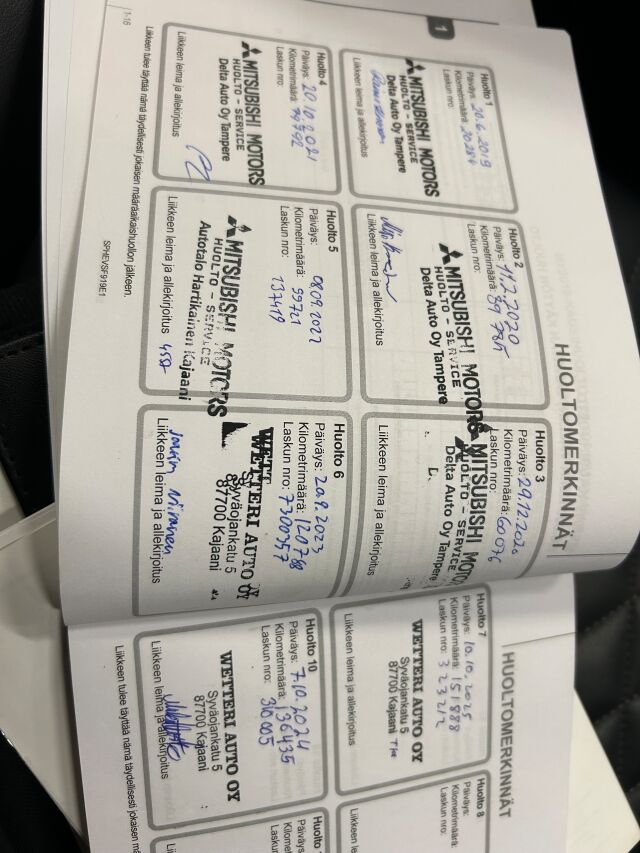 1
HUOLTOMERKINNÄT
Huolto 1
Päiväys: 20.6.2019
Kilometrimäärä: 20284
Laskun nro:
MITSUBISHI MOTORS
HUOLTO - SERVICE
Delta Auto Oy Tampere
Liikkeen leima ja allekirjoitus
Huolto 2
Päiväys: 11.2.2020
Kilometrimäärä: 39 785
Laskun nro:
MITSUBISHI MOTORS
HUOLTO - SERVICE
Delta Auto Oy Tampere
Liikkeen leima ja allekirjoitus
Huolto 3
Päiväys: 29.12.2020
Kilometrimäärä: 60076
Laskun nro:
MITSUBISHI MOTORS
HUOLTO - SERVICE
Delta Auto Oy Tampere
Liikkeen leima ja allekirjoitus
Huolto 4
Päiväys: 20.10.2021
Kilometrimäärä:
Laskun nro:
MITSUBISHI MOTORS
HUOLTO - SERVICE
Delta Auto Oy Tampere
Liikkeen leima ja allekirjoitus
Huolto 5
Päiväys: 08.09.2022
Kilometrimäärä: 99721
Laskun nro: 137419
MITSUBISHI MOTORS
HUOLTO - SERVICE
Autotalo Hartikainen Kajaani
Liikkeen leima ja allekirjoitus
Huolto 6
Päiväys: 20.9.2023
Kilometrimäärä: 120768
Laskun nro: 7300357
WETTERI AUTO OY
Syväojankatu 5
87700 Kajaani
Liikkeen leima ja allekirjoitus
Liikkeen tulee täyttää nämä täydellisesti jokaisen määräaikaishuollon jälkeen.
1-16
SPHEVSF919E1
HUOLTOMERKINNÄT
Huolto 7
Päiväys: 10.10.2025
Kilometrimäärä: 151888
Laskun nro: 323212
WETTERI AUTO OY
Syväojankatu 5
87700 Kajaani
Liikkeen leima ja allekirjoitus
Huolto 8
Päiväys:
Kilometrimäärä:
Laskun nro:
Liikkeen leima ja
Huolto 10
Päiväys: 7.10.2024
Kilometrimäärä: 136435
Laskun nro: 310005
WETTERI AUTO OY
Syväojankatu 5
87700 Kajaani
Liikkeen leima ja allekirjoitus
Liikkeen tulee täyttää nämä täydellisesti jokaisen